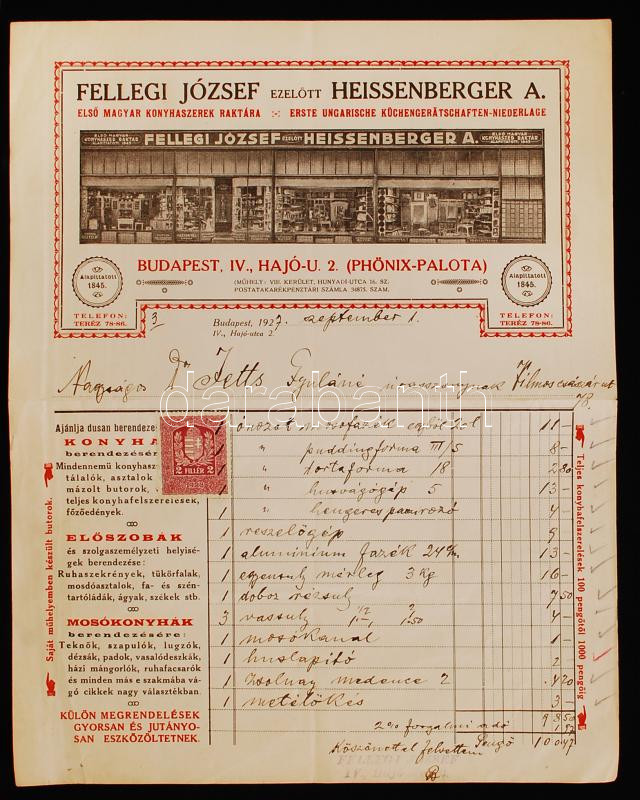 FELLEGI JÓZSEF EZELŐTT HEISSENBERGER A.
ELSŐ MAGYAR KONYHASZEREK RAKTÁRA ERSTE UNGARISCHE KÜCHENGERÄTSCHAFTEN-NIEDERLAGE
FELLEGI JÓZSEF EZELŐTT HEISSENBERGER A.
BUDAPEST, IV., HAJÓ-U. 2. (PHÖNIX-PALOTA)
(MŰHELY: VIII. KERÜLET, HUNYADI-UTCA 16. SZ.
POSTATAKARÉKPÉNZTÁRI SZÁMLA 31875. SZÁM.
Alapíttatott 1845.
Alapíttatott 1845.
TELEFON: TERÉZ 78-86.
TELEFON: TERÉZ 78-86.
3 Budapest, 1927. september 1.
IV., Hajó-utca 2.
Nagyságos Dr Jetts Gyuláné úrasszonynak Vilmos császár ut
78.
Ajánlja dusan berendeze
KONYHA
berendezésére
Mindennemű konyhasz
tálalók, asztalok
mázolt butorok,
teljes konyhafelszerelések,
főzőedények.
ELŐSZOBÁK
és szolgaszemélyzeti helyisé-
gek berendezése:
Ruhaszekrények, tükörfalak,
mosdóasztalok, fa- és szén-
tartóládák, ágyak, székek stb.
MOSÓKONYHÁK
berendezésére:
Teknők, szapulók, lugzók,
dézsák, padok, vasalódeszkák,
házi mángorlók, ruhafacsarók
és minden más e szakmába vá-
gó cikkek nagy választékban.
KÜLÖN MEGRENDELÉSEK
GYORSAN ÉS JUTÁNYO-
SAN ESZKÖZÖLTETNEK.
Saját műhelyemben készült butorok.
Teljes konyhafelszerelések 100 pengőtől 1000 pengőig
2 FILLÉR 2
1 ónozott mosófazék 11 –
1 " puddingforma III/5 8 –
1 " tortaforma 18 2 80
1 " husvágógép 5 13 –
1 " hengeres 4 –
1 reszelőgép 9
1 aluminium fazék 24 13 –
1 egyensuly mérleg 3 kg 16 –
1 doboz rézsuly 7 50
3 vassuly
1 mosókanal 1 –
1 huslapító 2 –
1 Zsolnay medence 2 4 20
1 metélőkés 3 –
98 50
2% forgalmi adó 1 97
Köszönettel felvettem Pengő 100 47
FELLEGI JÓZSEF
darabanth